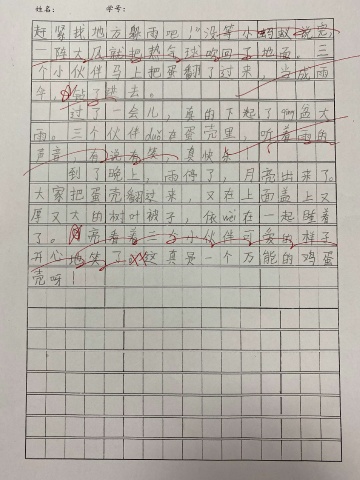 姓名： 学号：
赶紧找地方躲雨吧！"没等小蚂蚁说完，
一阵大风就把热气球吹回了地面。三
个小伙伴马上把蛋翻了过来，当成雨
伞，钻了进去。
过了一会儿，真的下起了倾盆大
雨。三个伙伴duǒ在蛋壳里，听着雨的
声音，有说有笑，真快乐！
到了晚上，雨停了，月亮出来了。
大家把蛋壳翻过来，又在上面盖上又
厚又大的树叶被子，依wēi在一起睡着
了。月亮看着三个小伙伴可爱的样子，
开心地笑了。这真是一个万能的鸡蛋
壳呀！